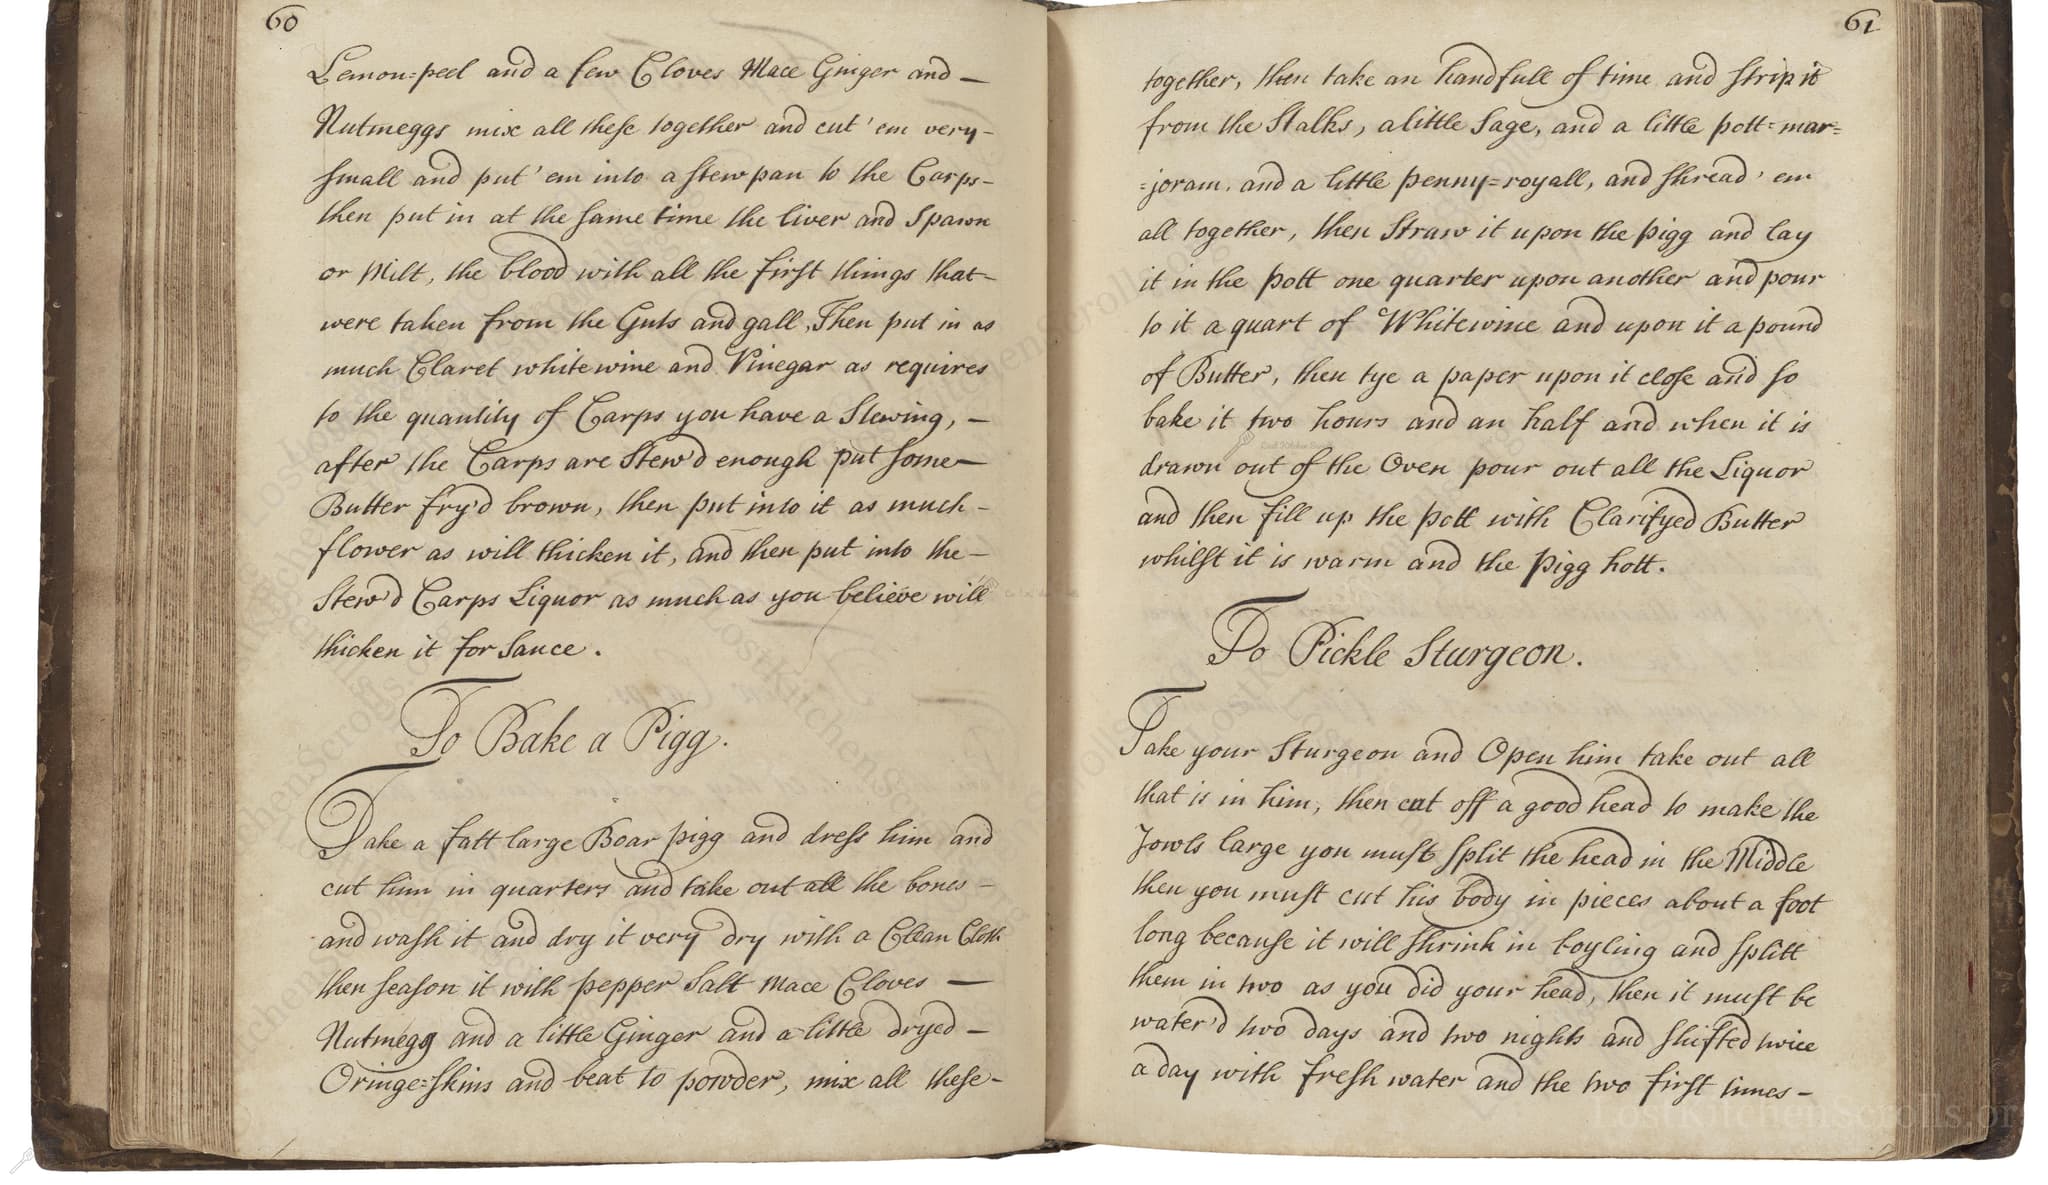 60
Lemon=peel and a few Cloves Mace Ginger and –
Nutmeggs mix all these together and cut 'em very –
small and put 'em into a stewpan to the Carps –
then put in at the same time the liver and Spawn
or Milt, the blood with all the first things that –
were taken from the Guts and gall, Then put in as
much Claret whitewine and Vinegar as requires
to the quantity of Carps you have a Stewing, –
after the Carps are Stew'd enough put some –
Butter fry'd brown, then put into it as much –
flower as will thicken it, and then put into the –
Stew'd Carps Liquor as much as you believe will
thicken it for Sauce.
To Bake a Pigg.
Take a fatt large Boar pigg and dress him and
cut him in quarters and take out all the bones –
and wash it and dry it very dry with a Clean Cloth
then season it with pepper Salt Mace Cloves –
Nutmegg and a little Ginger and a little dryed –
Oringe=skins and beat to powder, mix all these –
61
together, then take an handfull of time and strip it
from the Stalks, a little Sage, and a little pott=mar=
=joram, and a little penny=royall, and shread 'em
all together, then Straw it upon the pigg and lay
it in the pott one quarter upon another and pour
to it a quart of Whitewine and upon it a pound
of Butter, then tye a paper upon it close and so
bake it two hours and an half and when it is
drawn out of the Oven pour out all the Liquor
and then fill up the pott with Clarifyed Butter
whilst it is warm and the pigg hott.
To Pickle Sturgeon.
Take your Sturgeon and Open him take out all
that is in him, then cut off a good head to make the
Jowls large you must split the head in the Middle
then you must cut his body in pieces about a foot
long because it will shrink in boyling and splitt
them in two as you did your head, then it must be
water'd two days and two nights and shifted twice
a day with fresh water and the two first times –
LostKitchenScrolls.org